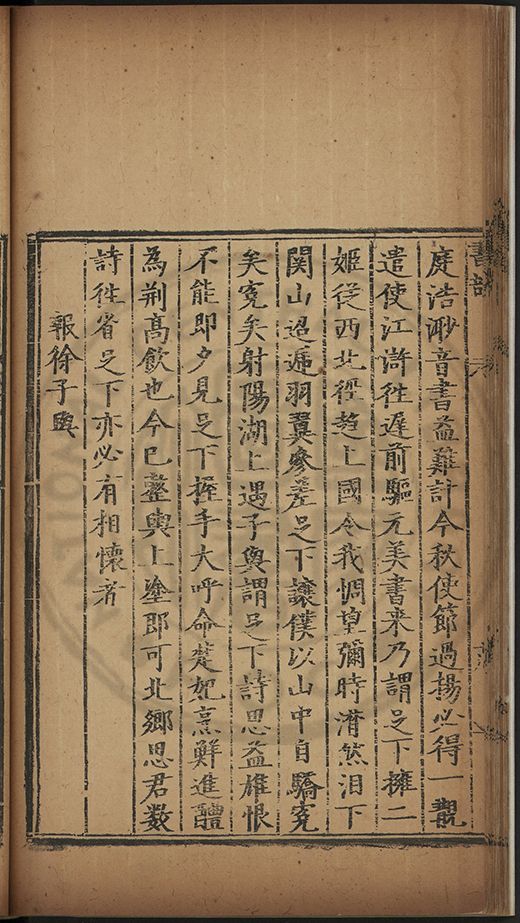 庭浩渺音書益難計今秋使節過揚必得一觀
遣使江滸往遲前驅元美書来乃謂足下擁二
姬從西北徑趋上國令我惆望彌時潸然泪下
関山迢遞羽翼參差足下讓僕以山中自驕寃
矣寃矣射陽湖上遇子與謂足下詩思益雄恨
不能即夕見足下握手大呼命楚妃烹鮮進醴
為荆高飲也今已蹇輿上塗即可北鄉思君数
詩往省足下亦必有相懷者
報徐子與